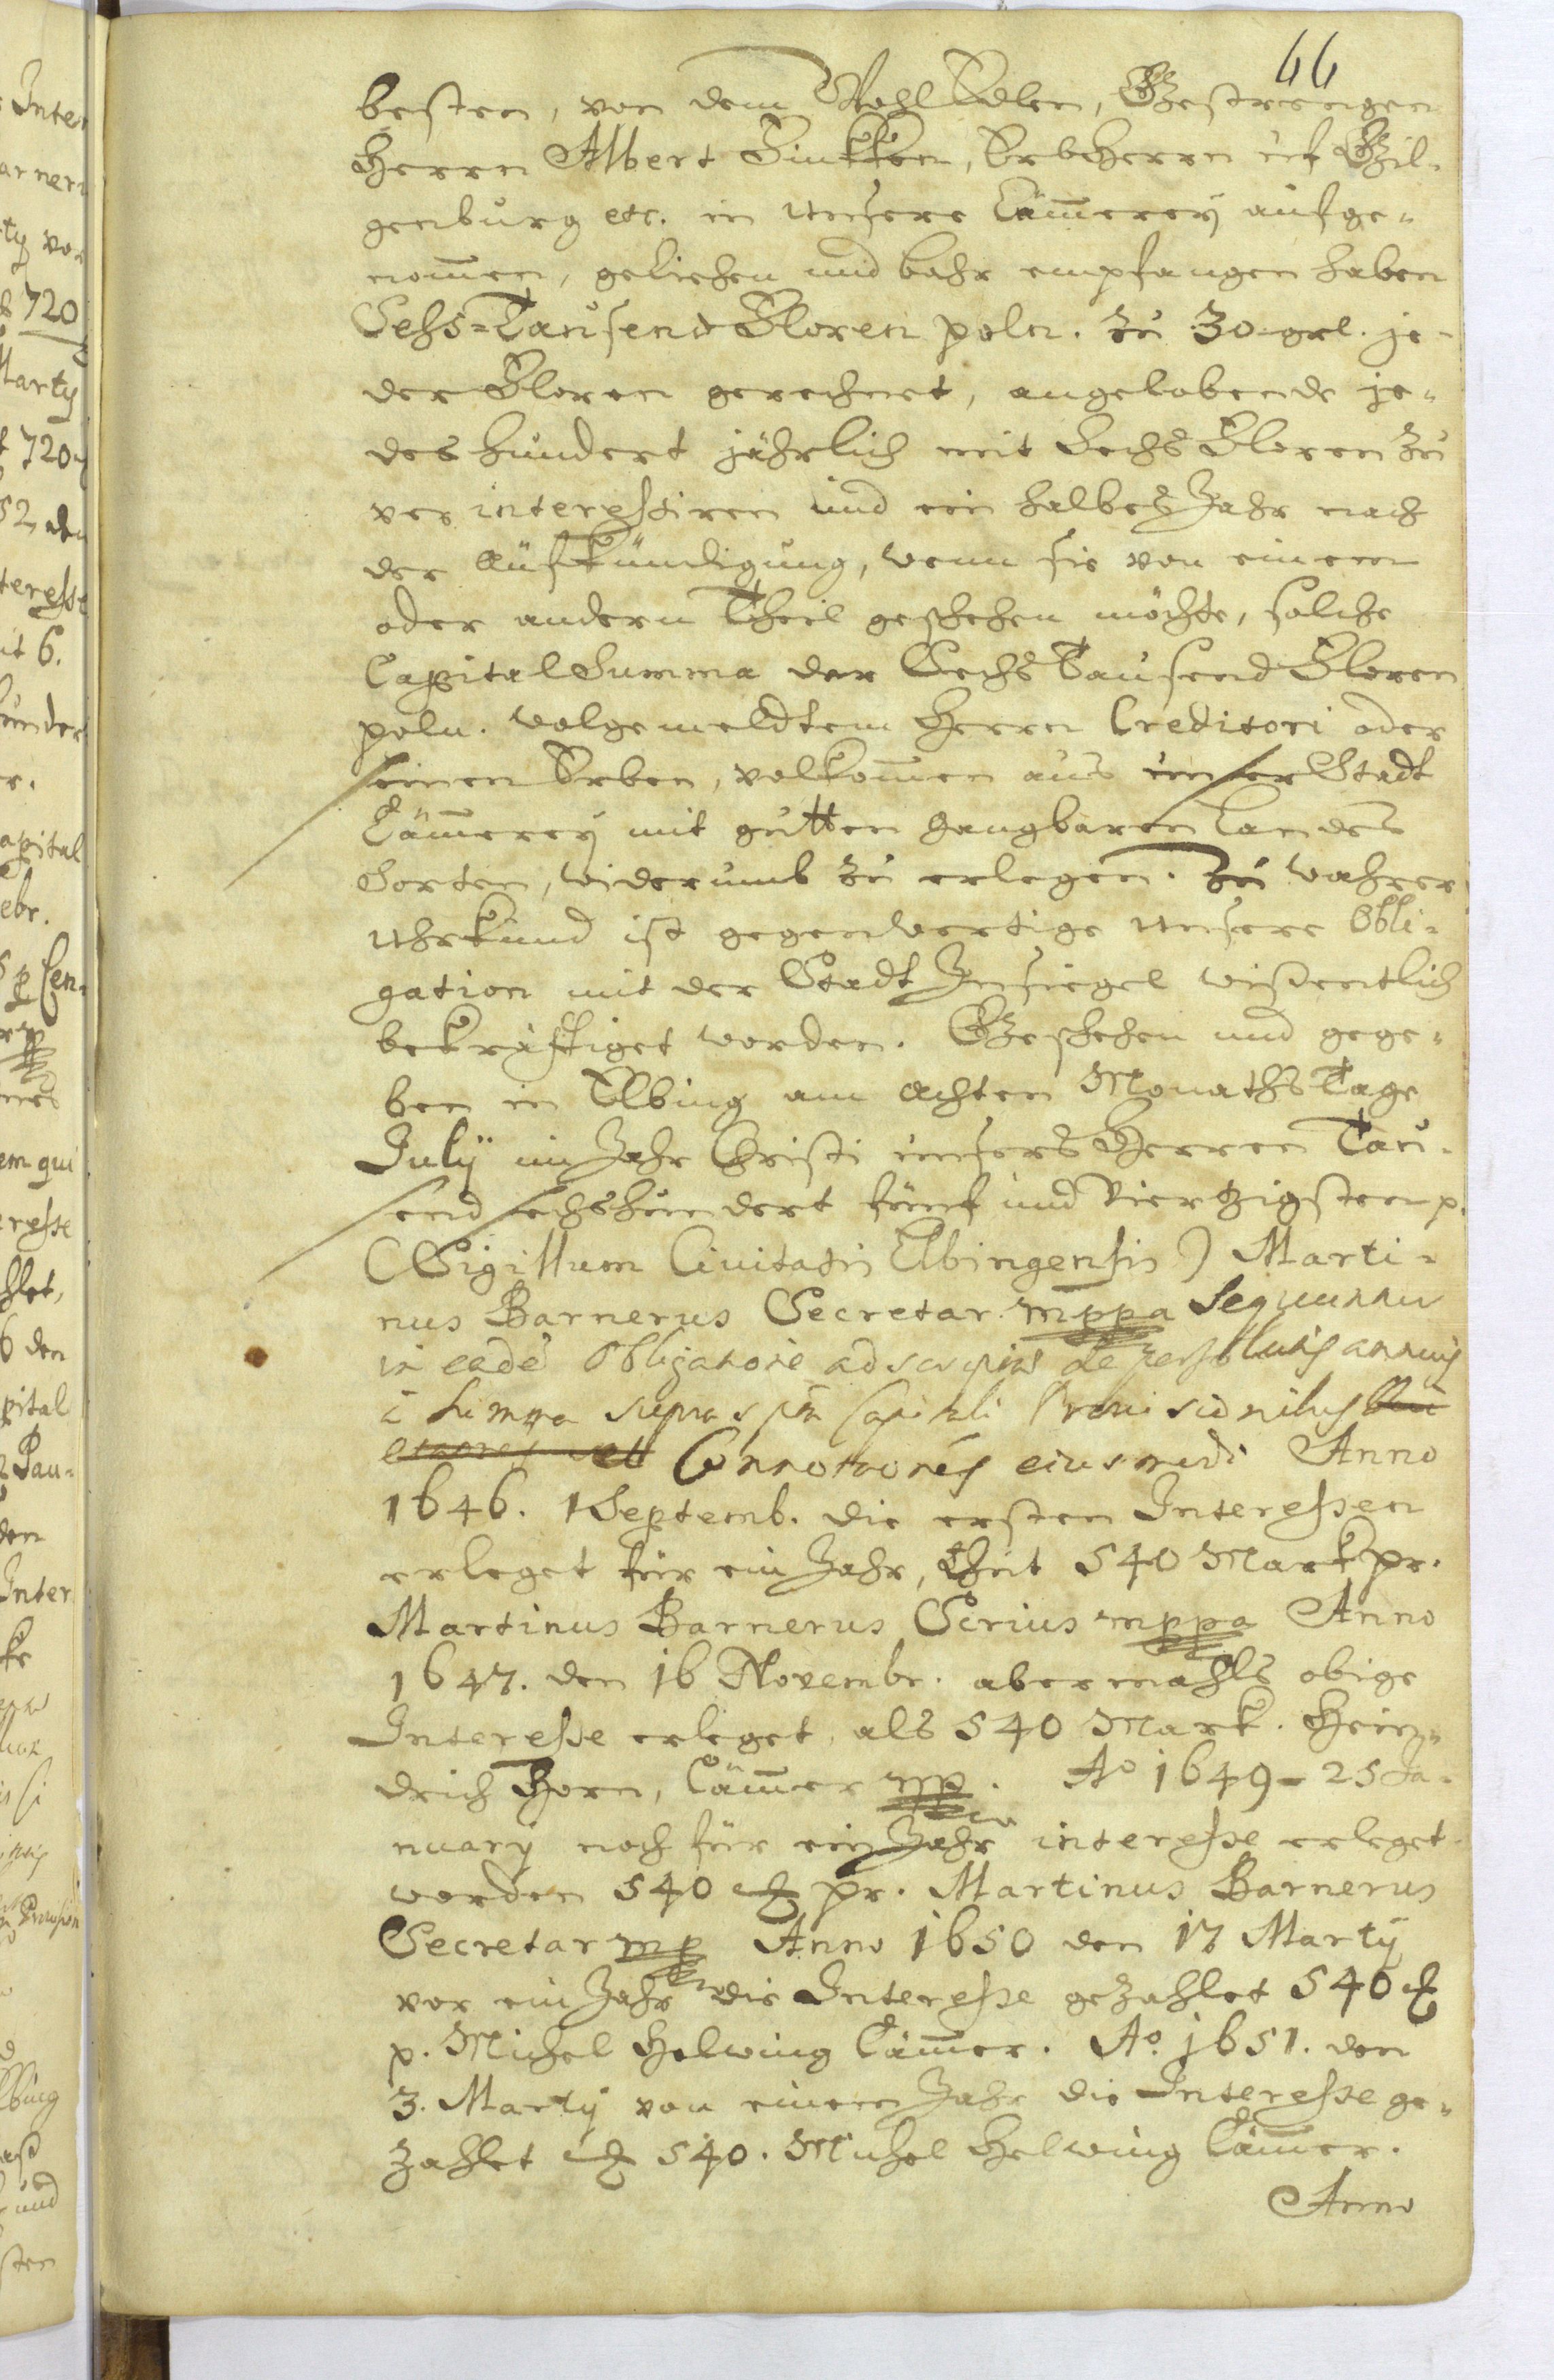 66
besten, von dem WohlEdlen, Gestrengen
Herrn Albert Finkken, Erbherrn uf Gil-
genburg etc. in unsere Cämmerey aufge-
nommen, geliehen und bahr empfangen haben
Sechs-Tausend Floren poln. zu 30 grl. je-
der Floren gerechnet, angelobende je-
des hundert jährlich mit Sechs Floren zu
ver interessiren und ein halbes Jahr nach
der Aufkündigung, wenn sie von einem
oder andern Theil geschehen möchte, solche
Capital Summa der Sechs Tausend Floren
poln. wolgemeldtem Herrn Creditori oder
seinen Erben, volkommen aus unser Stadt
Cämmerey mit gutten gangbaren Landes
Sorten, widerumb zu erlegen. Zu wahrer
Uhrkund ist gegenwertige unsere Obli-
gation mit der Stadt Insiegel wissentlich
bekräfftiget worden. Geschehen und gege-
ben in Elbing am achten Monaths Tage
July im Jahr Christi unsers Herren Tau-
send sechshundert fünf und Viertzigsten p.
(Sigillum Civitatis Elbingensis) Marti-
nus Barnerus Secretar. mppa Sequuntur
in eadē Obligatione adscriptae de persolutis annuis
à summa supras Capitali Provisionibus
Connotationes eiusmodi Anno
1646. 1 Septemb. die ersten Interessen
erleget für ein Jahr, thut 540 Mark pr.
Martinus Barnerus Scrius mppa Anno
1647. den 16 Novembr. abermahls obige
Interesse erleget, als 540 Mark. Hein-
drich Horn, Cämmer mp. Aо 1649 - 25 Ja-
nuary noch für ein Jahr interesse erleget
worden 540 ℳ pr. Martinus Barnerus
Secretar mp Anno 1650 den 17 Marty
vor ein Jahr die Interesse gezahlet 540 ℳ
p. Michel Helwing Cämmer. Aо. 1651. den
3. Marty von einem Jahr die Interesse ge-
zahlet ℳ 540. Michel Helwing Cämmer.
Anno